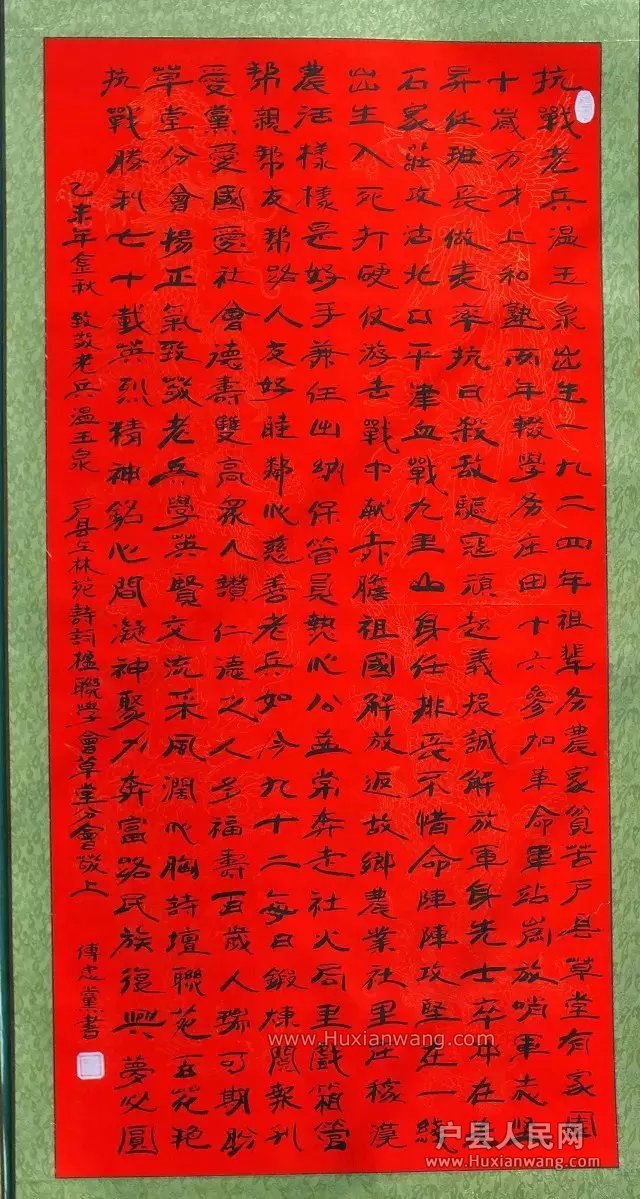 抗戰老兵温玉泉出生一九二四年祖輩务農家贫苦户县草堂有家園
十歲方才上私塾两年辍學务庄田十六参加革命軍站崗放哨軍志坚
昇任班長做表率抗日殺敵驅寇頑起義投誠解放軍身先士卒冲在先
石家莊攻古北口平津血戰九里山身任排長不惜命陣陣攻堅在一綫
出生入死打硬仗游击戰中献赤膽祖國解放返故鄉農業社里任稼漢
農活樣樣是好手兼任出納保管員熱心公益常奔走社火局里戲箱管
帮親帮友帮路人友好睦鄰心慈善老兵如今九十二每日鍛煉閱報刊
愛黨愛國愛社會德壽雙高衆人讚仁德之人多福壽百歲人瑞可期盼
草堂分會揚正氣致敬老兵學英賢交流采風潤心胸詩壇聯苑百花艳
抗戰勝利七十載英烈精神銘心間凝神聚力奔富路民族復興夢必圓
乙未年金秋 致敬老兵温玉泉 户县上林苑詩詞楹聯學會草堂分會敬上 傅忠黨書
www.Huxianwang.com
户县人民网
www.Huxianwang.com